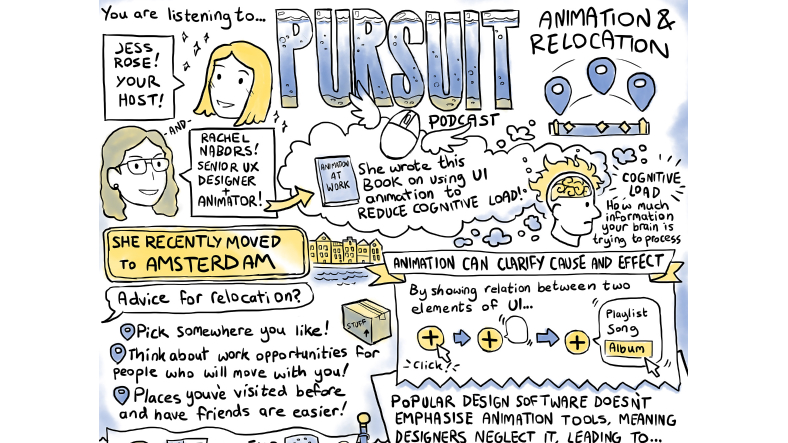 You are listening to...
PURSUIT
PODCAST
ANIMATION &
RELOCATION
JESS
ROSE!
YOUR
HOST!
-AND-
RACHEL
NABORS!
SENIOR UX
DESIGNER
+
ANIMATOR!
ANIMATION
AT
WORK
She wrote this
Book on using UI
animation to
REDUCE COGNITIVE LOAD!
COGNITIVE
LOAD
How much
information
your brain is
trying to process
SHE RECENTLY MOVED
TO AMSTERDAM
Advice for relocation?
STUFF
Pick somewhere you like!
Think about work opportunities for
people who will move with you!
Places you've visited before
and have friends are easier!
ANIMATION CAN CLARIFY CAUSE AND EFFECT
By showing relation between two
elements of UI...
Click!
Playlist
Song
Album
POPULAR DESIGN SOFTWARE DOESN'T
EMPHASISE ANIMATION TOOLS, MEANING
DESIGNERS NEGLECT IT, LEADING TO...